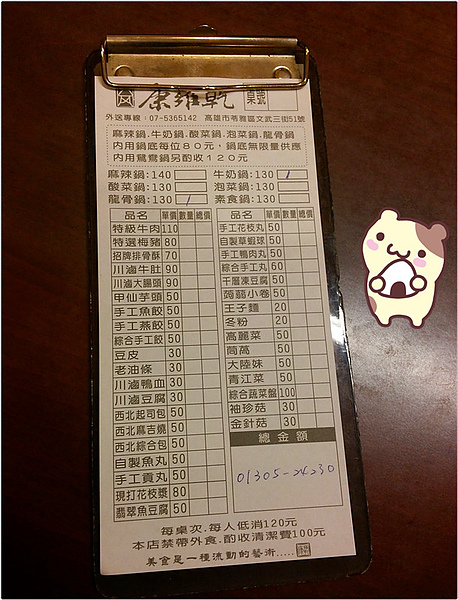 康維乾 桌號
外送專線：07-5365142 高雄市苓雅區文武三街51號
麻辣鍋.牛奶鍋.酸菜鍋.泡菜鍋.龍骨鍋
內用鍋底每位80元，鍋底無限量供應
內用鴛鴦鍋另酌收120元
麻辣鍋:140 牛奶鍋:130 /
酸菜鍋:130 泡菜鍋:130
龍骨鍋:130 / 素食鍋:130
品名 單價 數量 總價 品名 單價 數量 總價
特級牛肉 110 手工花枝丸 50
特選梅豬 80 自製草蝦球 50
招牌排骨酥 70 手工鴨肉丸 50
川滷牛肚 90 綜合手工丸 60
川滷大腸頭 90 千層凍豆腐 50
甲仙芋頭 50 蒟蒻小卷 50
手工魚餃 50 王子麵 20
手工燕餃 50 冬粉 20
綜合手工餃 50 高麗菜 50
豆皮 30 茼萵 50
老油條 30 大陸妹 50
川滷鴨血 30 青江菜 50
川滷豆腐 30 綜合蔬菜盤 100
西北起司包 50 袖珍菇 30
西北麻吉燒 50 金針菇 30
西北綜合包 50 總金額
自製魚丸 50
手工貢丸 50 01305-24230
現打花枝漿 80
翡翠魚豆腐 50
每桌次.每人低消120元
本店禁帶外食.酌收清潔費100元
美食是一種流動的藝術.....